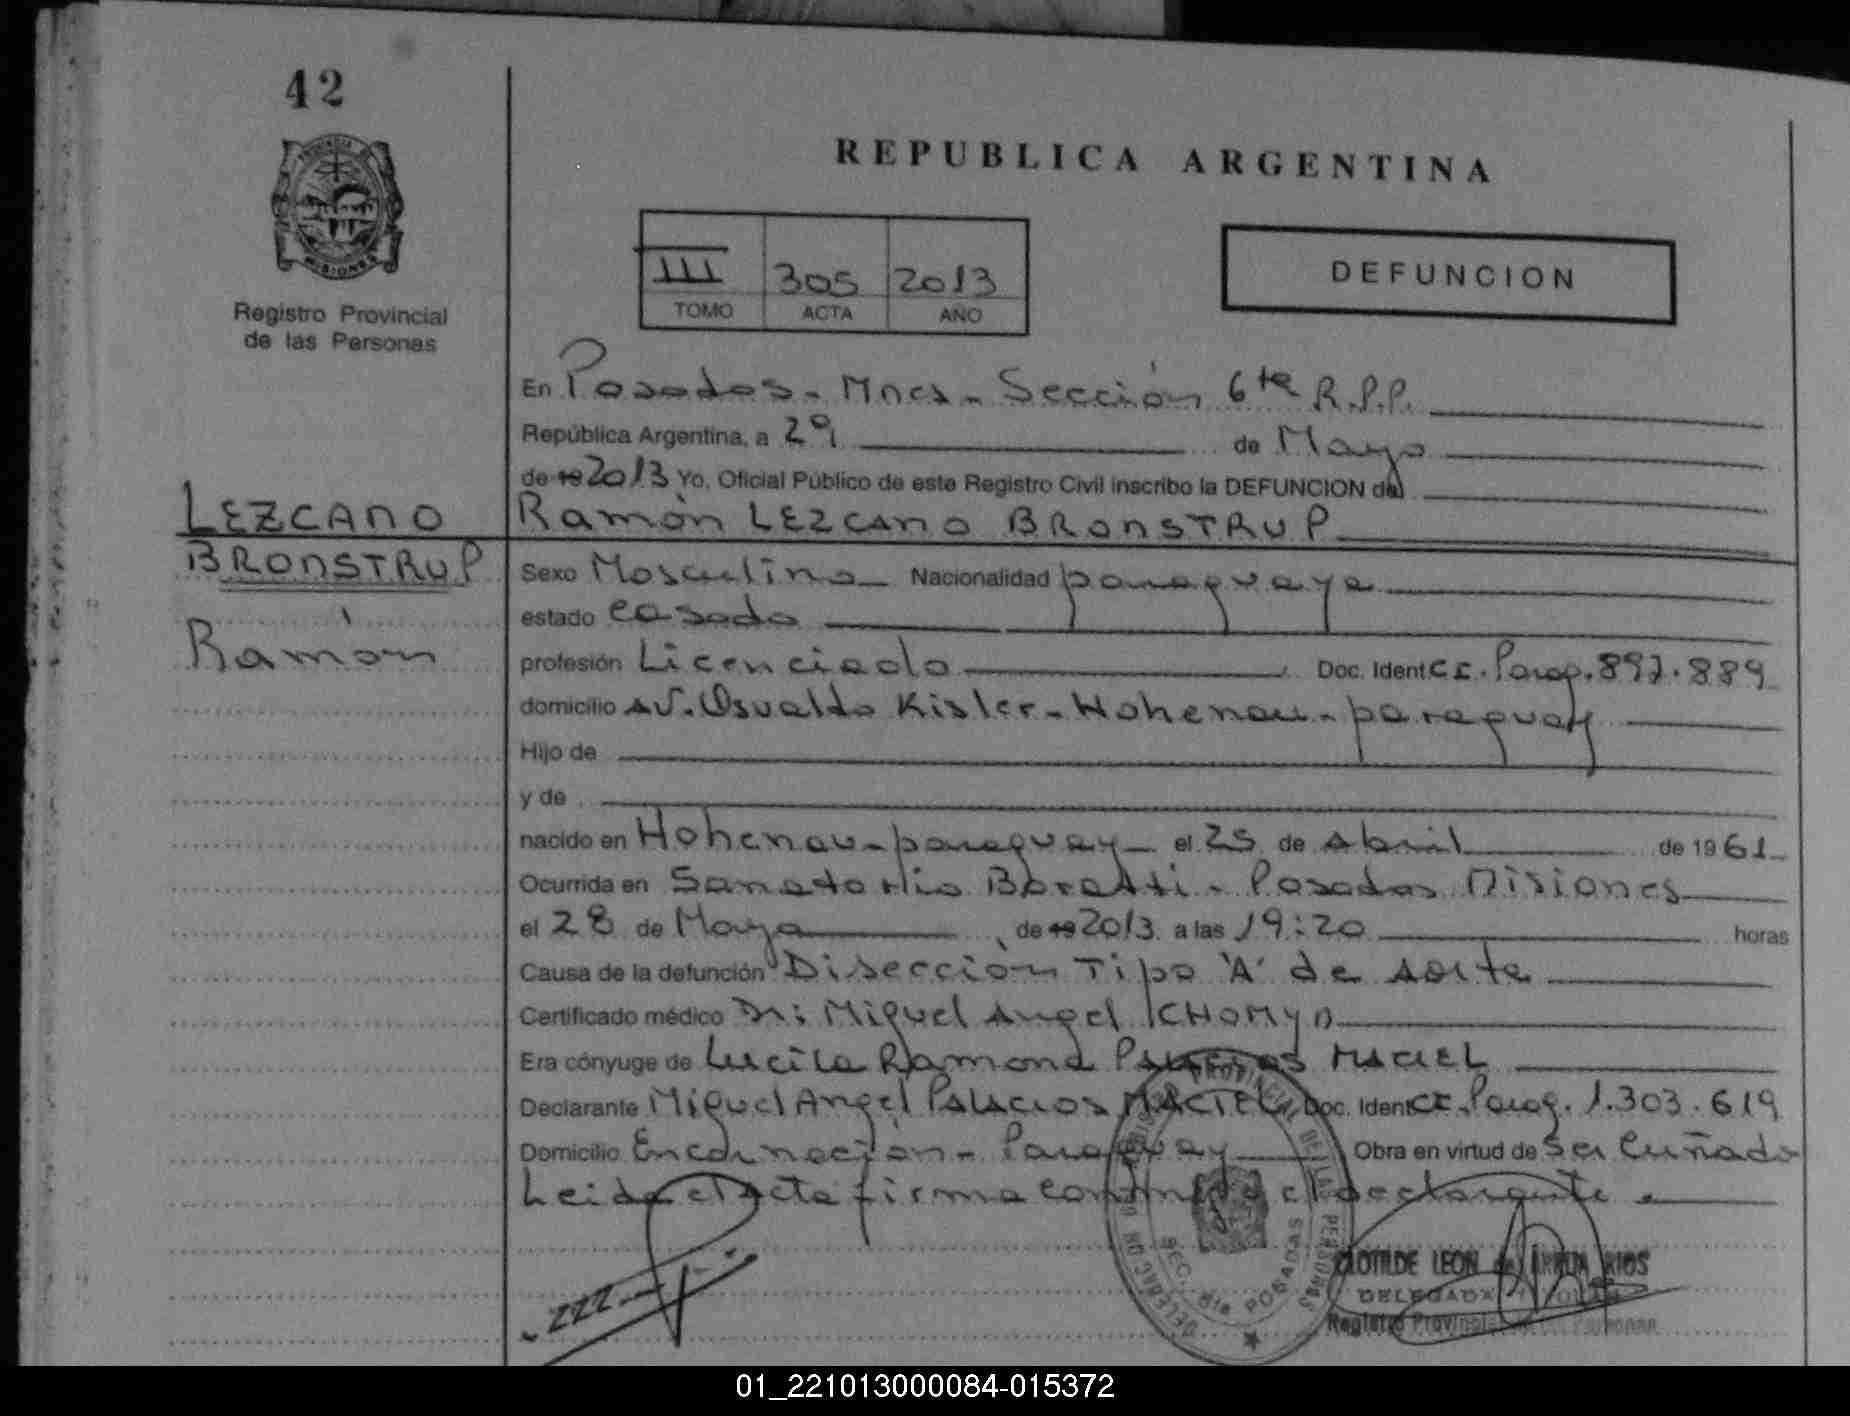 42
REPUBLICA ARGENTINA
PROVINCIA DE
MISIONES
Registro Provincial
de las Personas
III 305 2013
TOMO ACTA AÑO
DEFUNCION
En Posadas - Mnes - Sección 6ta R.P.P.
República Argentina, a 29 de Mayo
de 19 2013 Yo, Oficial Público de este Registro Civil inscribo la DEFUNCION de
LEZCANO
BRONSTRUP
Ramón
Ramón LEZCANO BRONSTRUP
Sexo Masculino Nacionalidad paraguaya
estado casado
profesión Licenciado Doc. Ident C.I. Parag. 897.889
domicilio AV. Osvaldo Kisler - Hohenau - paraguay
Hijo de
y de
nacido en Hohenau - paraguay - el 25 de Abril de 1961
Ocurrida en Sanatorio Boratti - Posadas Misiones
el 28 de Mayo de 19 2013 a las 19:20 horas
Causa de la defunción Disección Tipo 'A' de Aorta
Certificado médico Dr: Miguel Angel KHOMYN
Era cónyuge de Lucila Ramona Palacios MACIEL
Declarante Miguel Angel PALACIOS MACIEL Doc. Ident C.I. Parag. 1.303.619
Domicilio Encarnación - Paraguay Obra en virtud de ser Cuñado
Leida el acta firma conmigo el declarante.
ZZZ
SEC. 6ta POSADAS
CLOTILDE LEON de RIOS
DELEGADA TITULAR
Registro Provincial
01_221013000084-015372